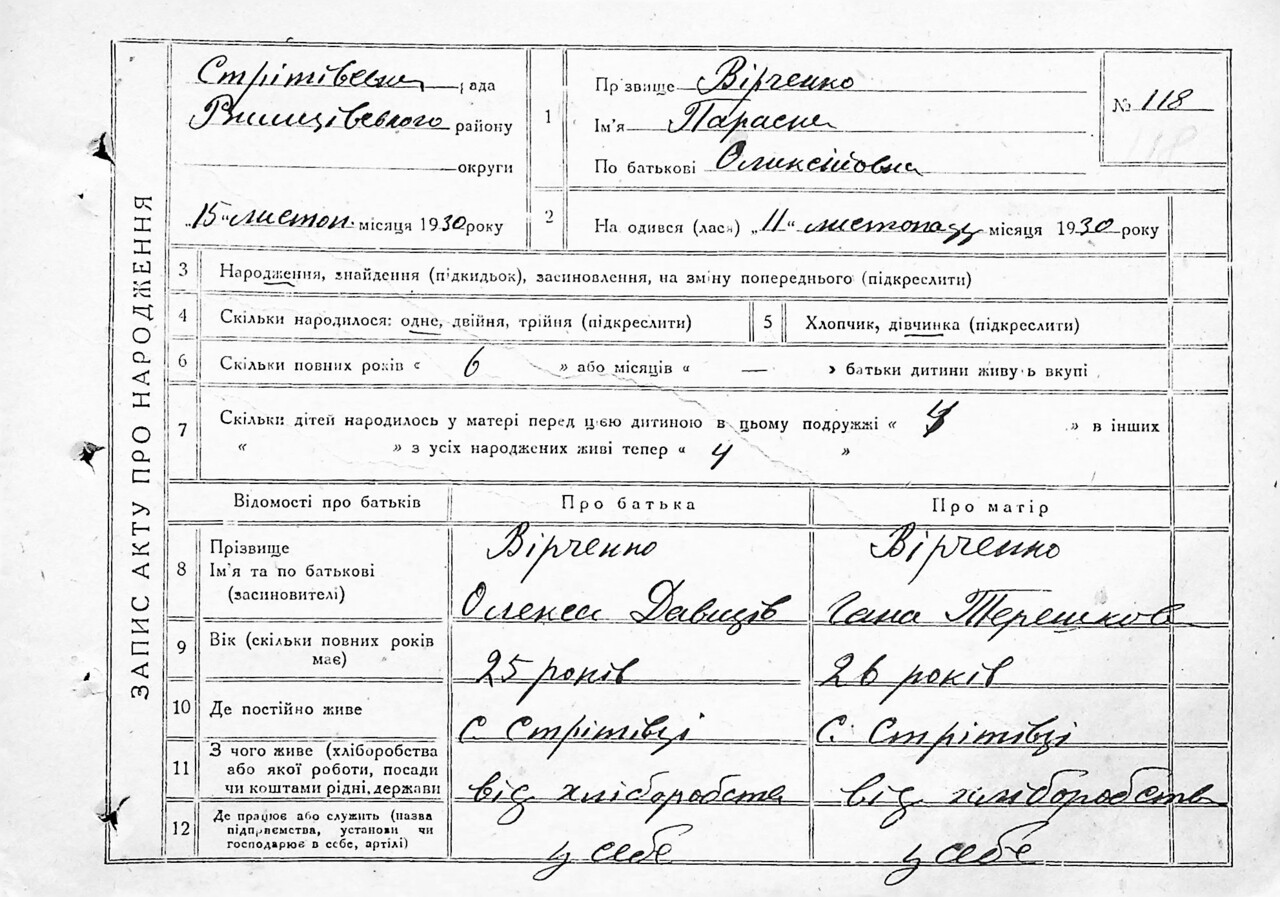 ЗАПИС АКТУ ПРО НАРОДЖЕННЯ
Стрітівська рада
Ржищівського району
округи
„15“ листоп місяця 1930 року
1
Прізвище Вірченко
Ім'я Параска
По батькові Олексіївна
№ 118
118
2 На одився (лася) „11“ листопаду місяця 1930 року
3 Народження, знайдення (підкидьок), засиновлення, на зміну попереднього (підкреслити)
4 Скільки народилося: одне, двійня, трійня (підкреслити)
5 Хлопчик, дівчинка (підкреслити)
6 Скільки повних років « 6 » або місяців « — » батьки дитини живуть вкупі
7 Скільки дітей народилось у матері перед цією дитиною в цьому подружжі « » в інших
« » з усіх народжених живі тепер « 4 »
Відомості про батьків Про батька Про матір
8 Прізвище Вірченко Вірченко
Ім'я та по батькові
(засиновителі) Олекса Давидів Гана Терешкова
9 Вік (скільки повних років
має) 25 років 26 років
10 Де постійно живе с. Стрітівці с. Стрітівці
11 З чого живе (хліборобства
або якої роботи, посади
чи коштами рідні, держави від хліборобства від хліборобства
12 Де працює або служить (назва
підприємства, установи чи
господарює в себе, артілі) у себе у себе